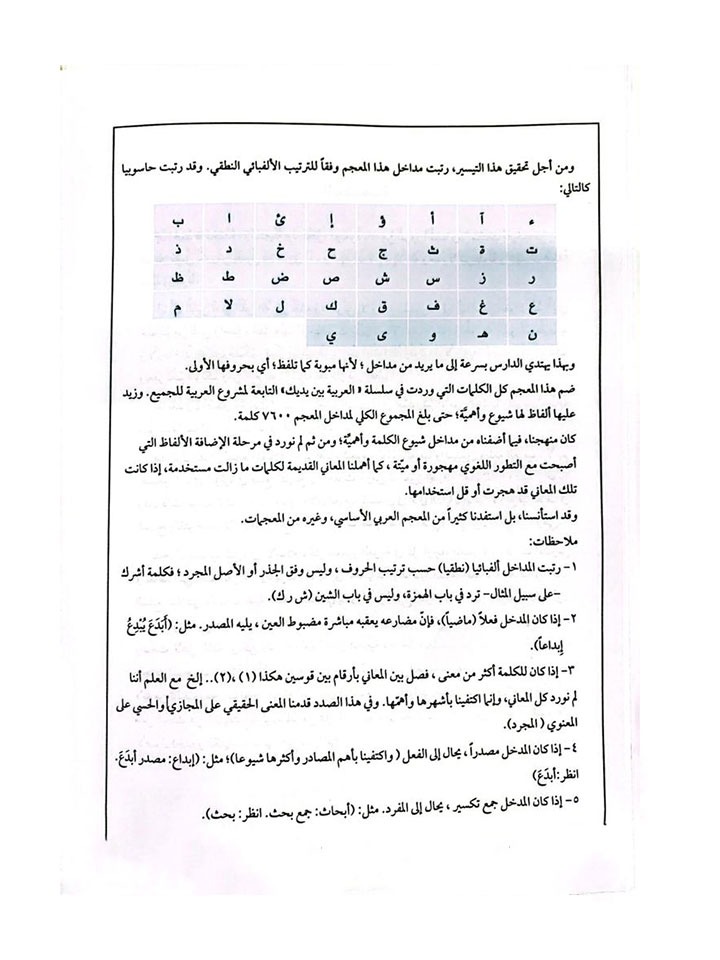 ومن أجل تحقيق هذا التيسير، رتبت مداخل هذا المعجم وفقاً للترتيب الألفبائي النطقي. وقد رتبت حاسوبيا
كالتالي:
ء آ أ ؤ إ ئ ا ب
ت ة ث ج ح خ د ذ
ر ز س ش ص ض ط ظ
ع غ ف ق ك ل لا م
ن هـ و ى ي
وبهذا يهتدي الدارس بسرعة إلى ما يريد من مداخل ؛ لأنها مبوبة كما تلفظ؛ أي بحروفها الأولى.
ضم هذا المعجم كل الكلمات التي وردت في سلسلة « العربية بين يديك» التابعة لمشروع العربية للجميع. وزيد
عليها ألفاظ لها شيوع وأهميَّة؛ حتى بلغ المجموع الكلي لمداخل المعجم ٧٦٠٠ كلمة.
كان منهجنا، فيما أضفناه من مداخل شيوع الكلمة وأهميَّة؛ ومن ثم لم نورد في مرحلة الإضافة الألفاظ التي
أصبحت مع التطور اللغوي مهجورة أو ميّتة ، كما أهملنا المعاني القديمة لكلمات ما زالت مستخدمة، إذا كانت
تلك المعاني قد هجرت أو قل استخدامها.
وقد استأنسنا، بل استفدنا كثيراً من المعجم العربي الأساسي، وغيره من المعجمات.
ملاحظات:
١- رتبت المداخل ألفبائيا (نطقيا) حسب ترتيب الحروف ، وليس وفق الجذر أو الأصل المجرد ؛ فكلمة أشرك
-على سبيل المثال- ترد في باب الهمزة، وليس في باب الشين (ش ر ك).
٢- إذا كان المدخل فعلاً (ماضياً)، فإنّ مضارعه يعقبه مباشرة مضبوط العين ، يليه المصدر. مثل: (أَبَدَعَ يُبْدِعُ
إِبداعاً).
٣- إذا كان للكلمة أكثر من معنى ، فصل بين المعاني بأرقام بين قوسين هكذا (١) ،(٢).. إلخ مع العلم أننا
لم نورد كل المعاني، وإنما اكتفينا بأشهرها وأهمّها. وفي هذا الصدد قدمنا المعنى الحقيقي على المجازي/ والحسي على
المعنوي ( المجرد).
٤- إذا كان المدخل مصدراً ، يحال إلى الفعل ( واكتفينا بأهم المصادر وأكثرها شيوعا)؛ مثل: (إبداع: مصدر أبدَعَ.
انظر:أبدَعَ)
٥- إذا كان المدخل جمع تكسير ، يحال إلى المفرد. مثل: (أبحاث: جمع بحث. انظر: بحث).